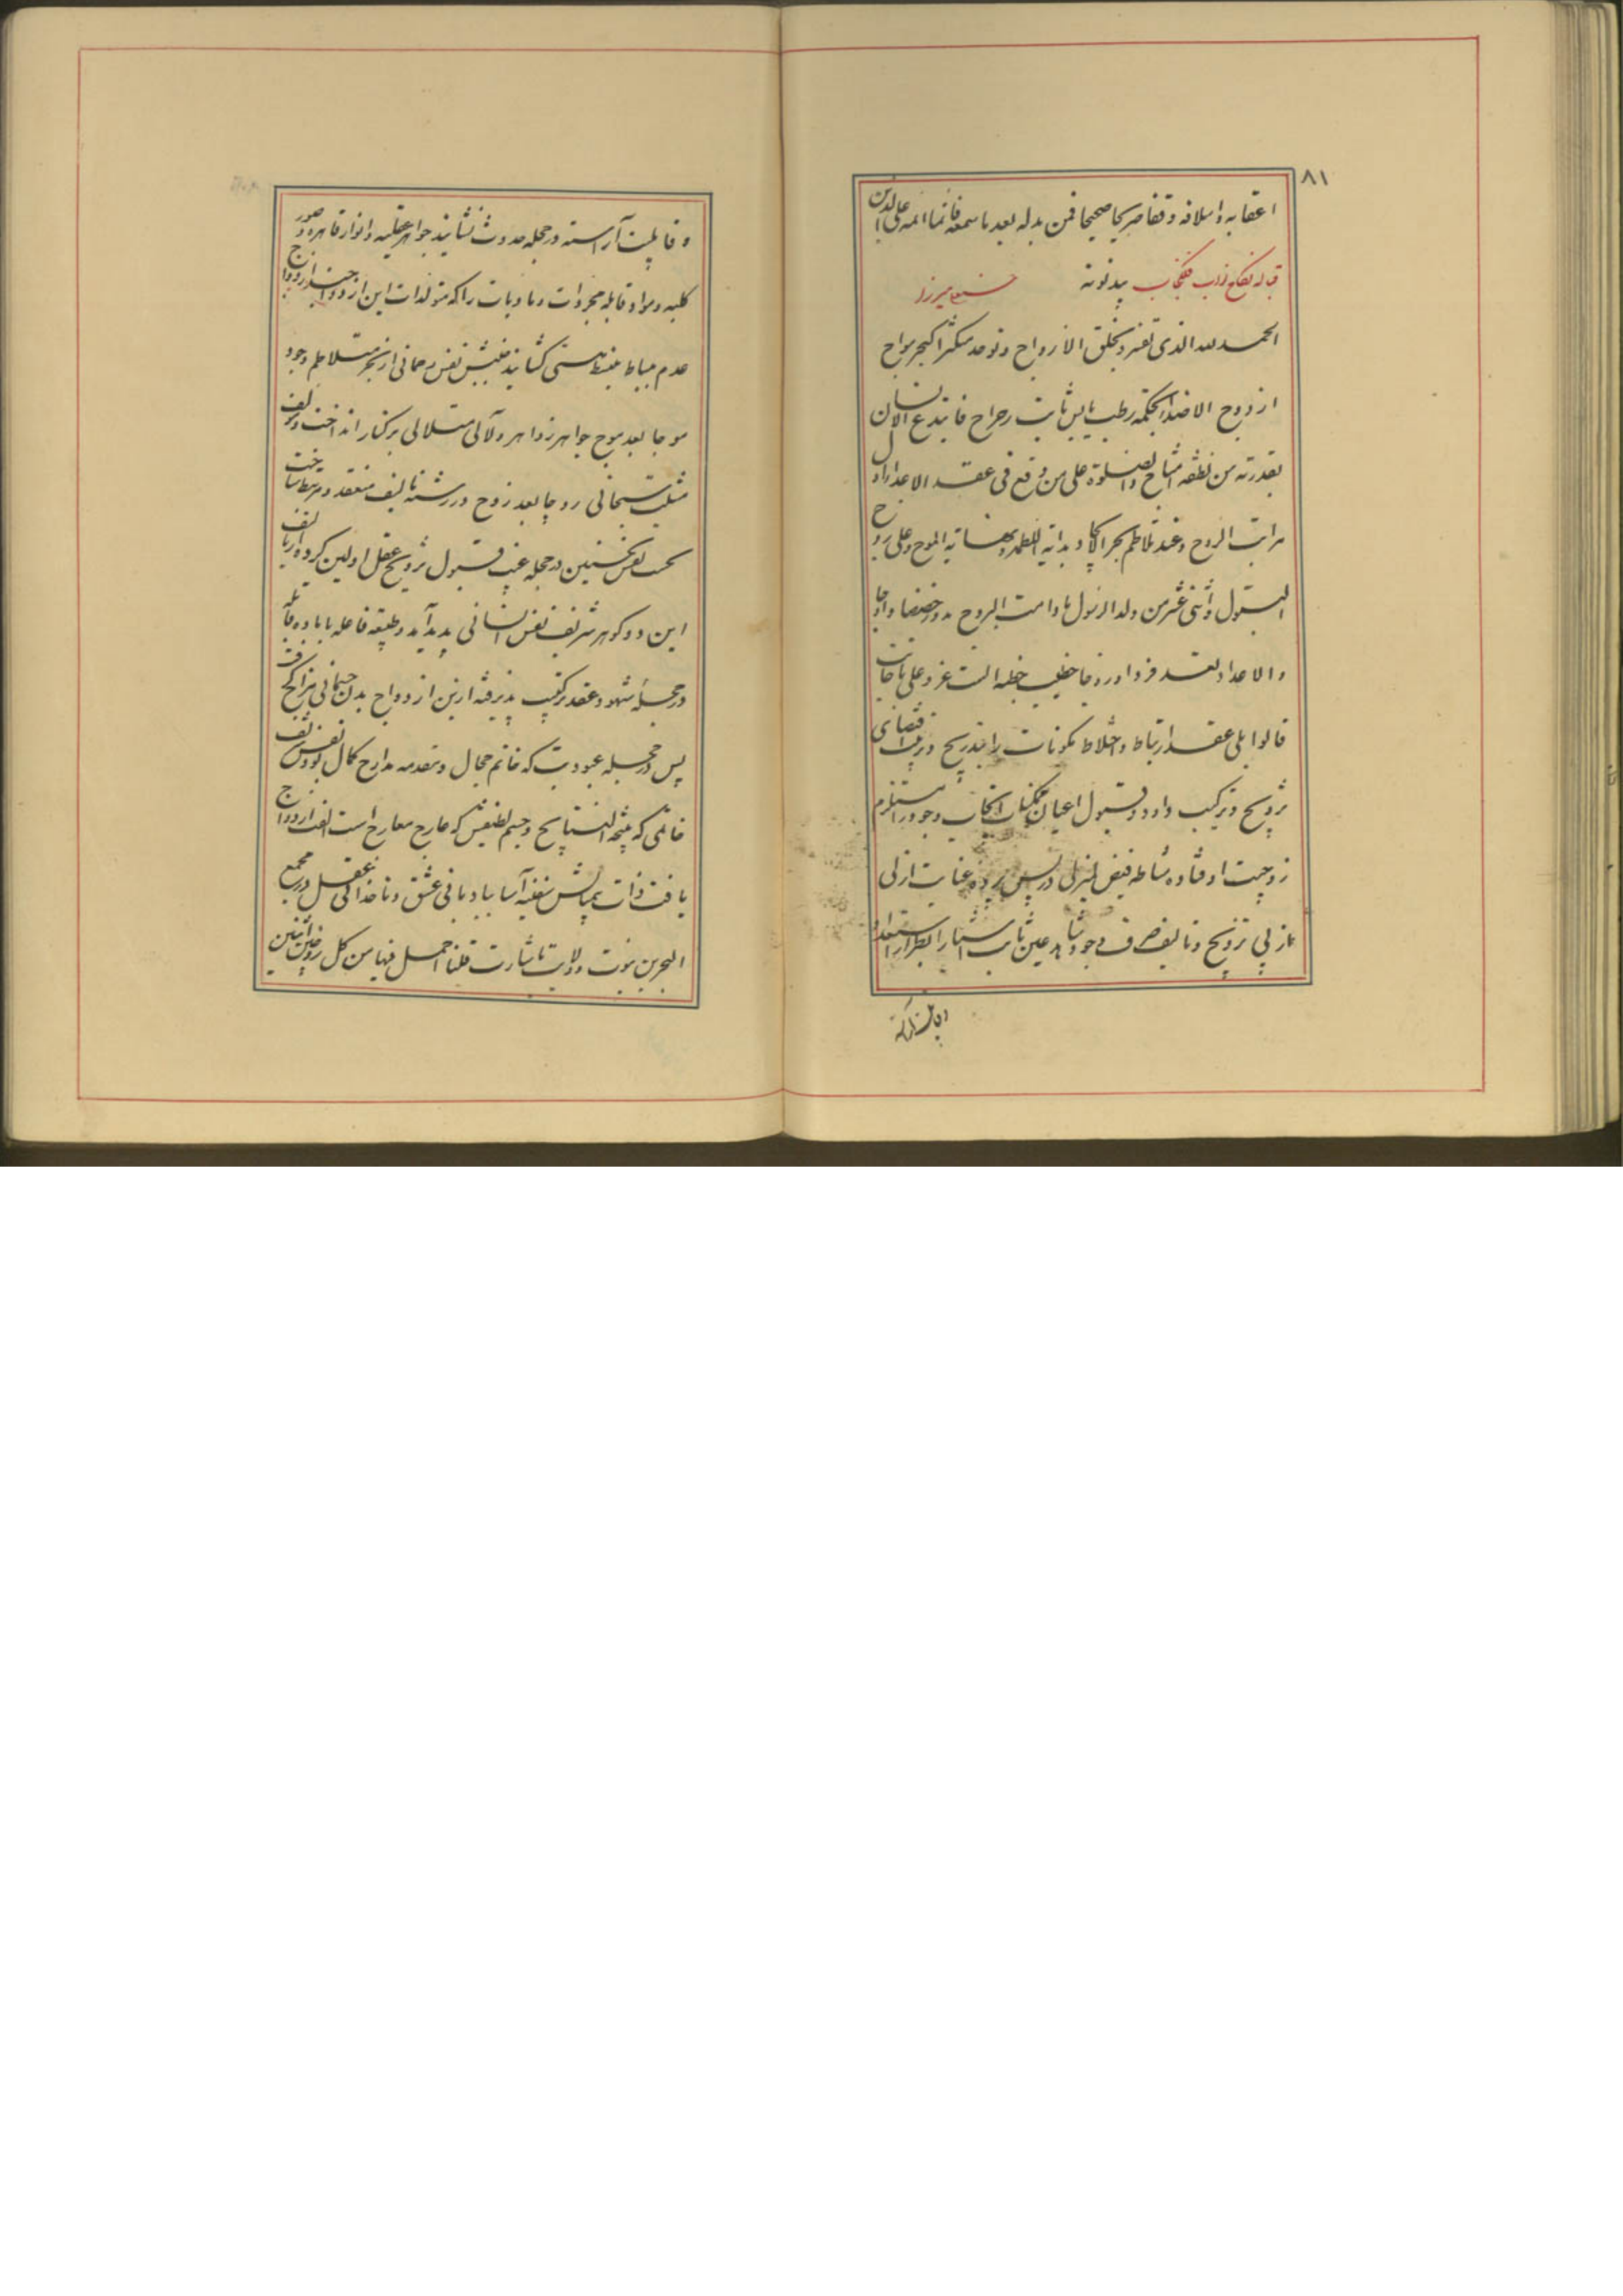 ۸۱
اعقابه و اسلافه وقفا صریحا صحیحا فمن بدله بعد ما سمعه فانما اثمه علی الذین
قباله نکاح نواب
الحمد لله الذی تفرد بخلق الازواج و توحد
ازدوج الاضداد بحکمته رطب یابس ثابت رجراج فابتدع الانسان
بقدرته من نطفة امشاج والصلوة علی من وقع فی عقد الاعداد اول
مراتب الزوج و عند تلاطم بحر الایجاد بدایة اللطمة و نهایة الموج و علی زوج
البتول و اثنی عشر من ولد الرسول مادامت البروج
والاعداد لعقد فردا و زوجا خطیب خطبه الست عز و علی باجابت
قالوا بلی عقد ارتباط و اختلاط مکونات را بتدریج و ترتیب اقتضای
تزویج و ترکیب داد و قبول اعیان ممکنات ایجاب وجود را مستلزم
زوجیت اوفتاده مشاطه فیض لم یزلی در پس پرده عنایت ازلی
از پی تزویج و تالیف وجود شاهد عین ثابت
و قابلیت
و قابلیت آراسته در حجله حدوث نشانید جواهر عقلیه و انوار قاهره و صور
کلیه و مواد قابله مجردات و مادیات را که متولدات این ازدواجند از ازدواج
عدم بباط منبسط هستی کشانید جنبش نفس رحمانی از بحر متلاطم وجود
موجا بعد موج جواهر زواهر و لآلی متلالی بر کنار انداخت و مؤلف
مشیت سبحانی زوجا بعد زوج در رشته تالیف منعقد و مرتبط ساخت
نخست نفس نخستین در حجله غیب قبول تزویج عقل اولین کرده از تالیف
این دو گوهر شریف نفس انسانی پدید آید و طبیعه فاعله با ماده قابله
در حجله شهود عقد ترکیب پذیرفته ازین ازدواج بدن جسمانی مزاج گرفت
پس در حجله عبودیت که خاتم مجال و مقدمه مدارج کمال بود نفس شریف
خاتمی که نتیجة النتایج و جسم لطیفش که عارج معارج است الفت ازدواج
یافت ذات بیمالش سفینه آسا ببادبانی عشق و ناخدائی عقل در مجمع
البحرین نبوت و ولایت تا بشارت قلنا احمل فیها من کل زوجین اثنین